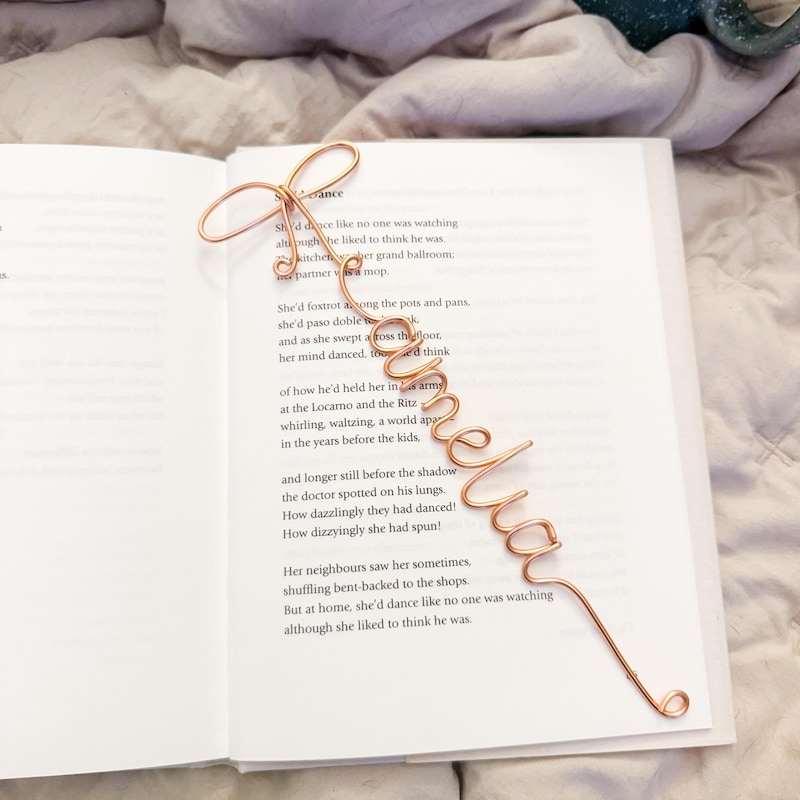 She'd Dance
She'd dance like no one was watching
although she liked to think he was.
The kitchen was her grand ballroom;
her partner was a mop.
She'd foxtrot among the pots and pans,
she'd paso doble to the sink,
and as she swept across the floor,
her mind danced, too. She'd think
of how he'd held her in his arms
at the Locarno and the Ritz –
whirling, waltzing, a world apart –
in the years before the kids,
and longer still before the shadow
the doctor spotted on his lungs.
How dazzlingly they had danced!
How dizzyingly she had spun!
Her neighbours saw her sometimes,
shuffling bent-backed to the shops.
But at home, she'd dance like no one was watching
although she liked to think he was.
amelia